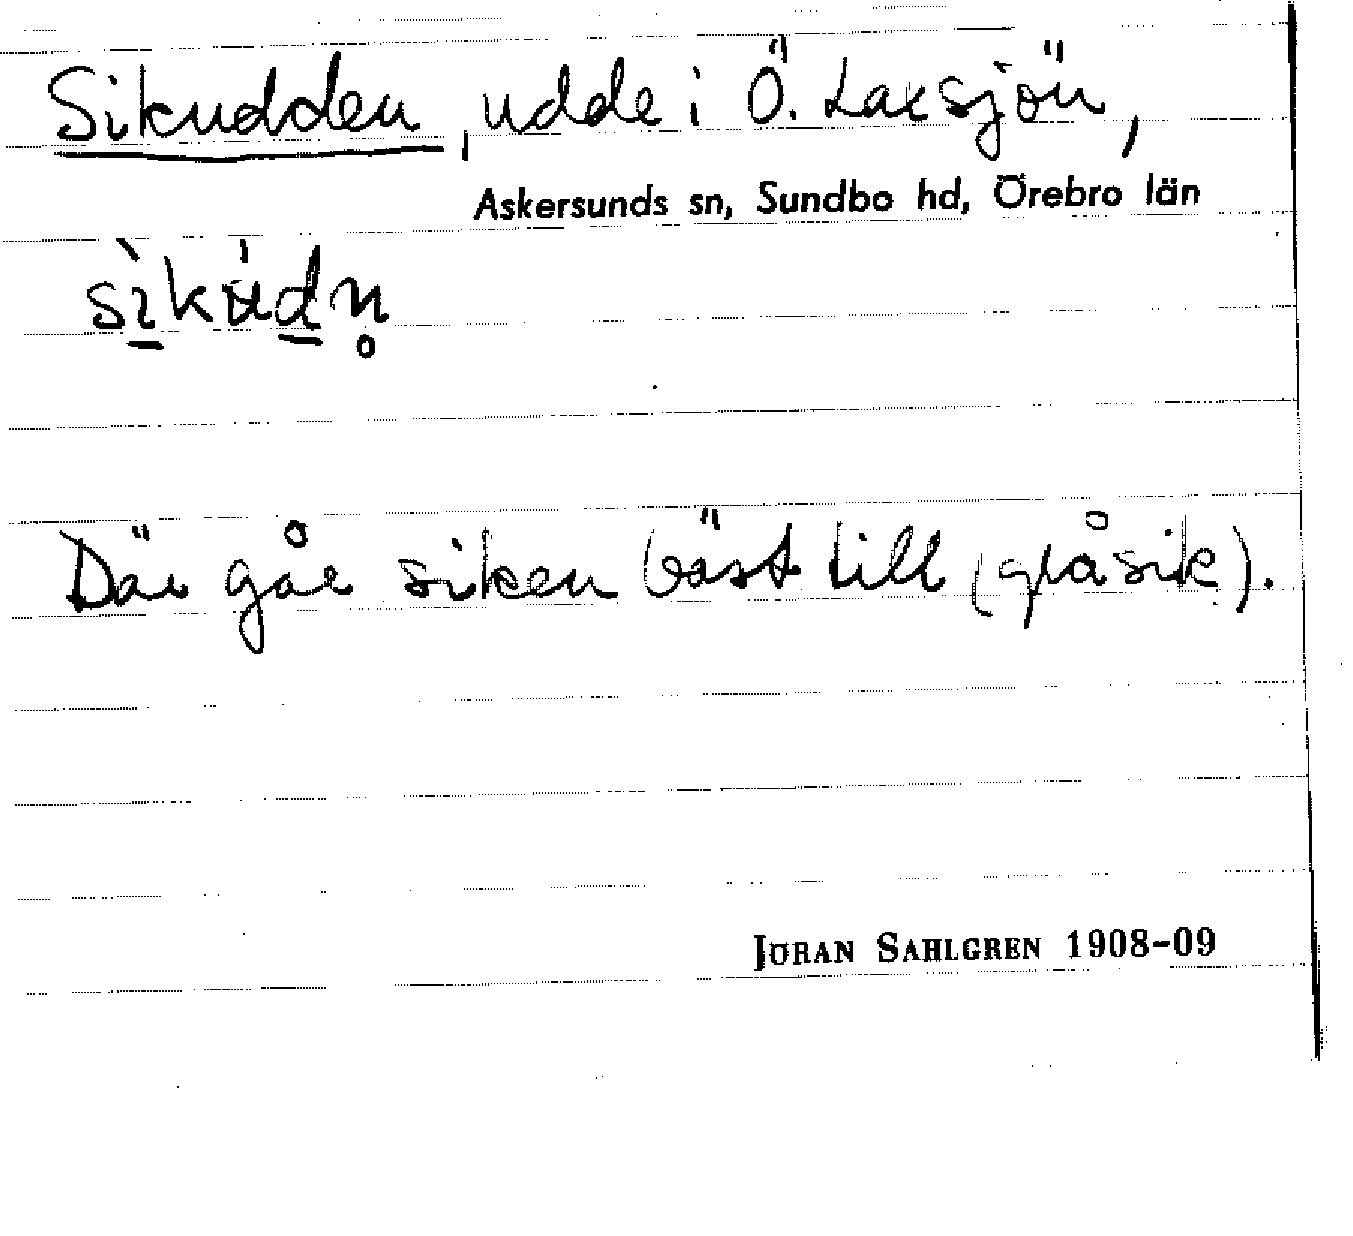 Sikudden, udde i Ö. Laxsjön,
Askersunds sn, Sundbo hd, Örebro län
sìkúdn̥
Där går siken bäst till (gråsik).
JÖRAN SAHLGREN 1908-09